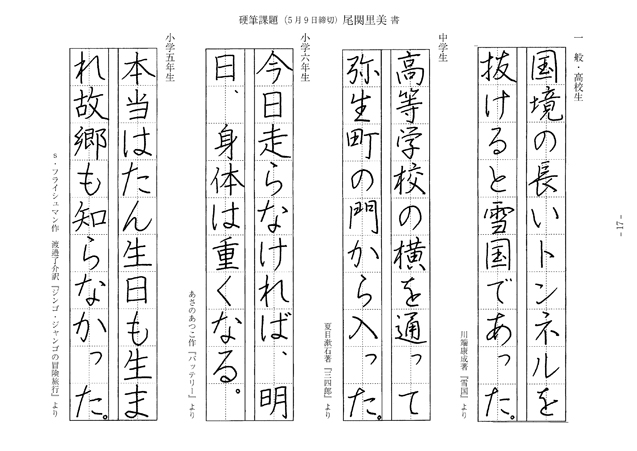 硬筆課題（5月9日締切）尾関里美 書
一般・高校生
国境の長いトンネルを
抜けると雪国であった。
川端康成著『雪国』より
中学生
高等学校の横を通って
弥生町の門から入った。
夏目漱石著『三四郎』より
小学六年生
今日走らなければ、明
日、身体は重くなる。
あさのあつこ作『バッテリー』より
小学五年生
本当はたん生日も生ま
れ故郷も知らなかった。
S・フライシュマン作 渡邉了介訳『ジンゴ・ジャンゴの冒険旅行』より
- 17 -